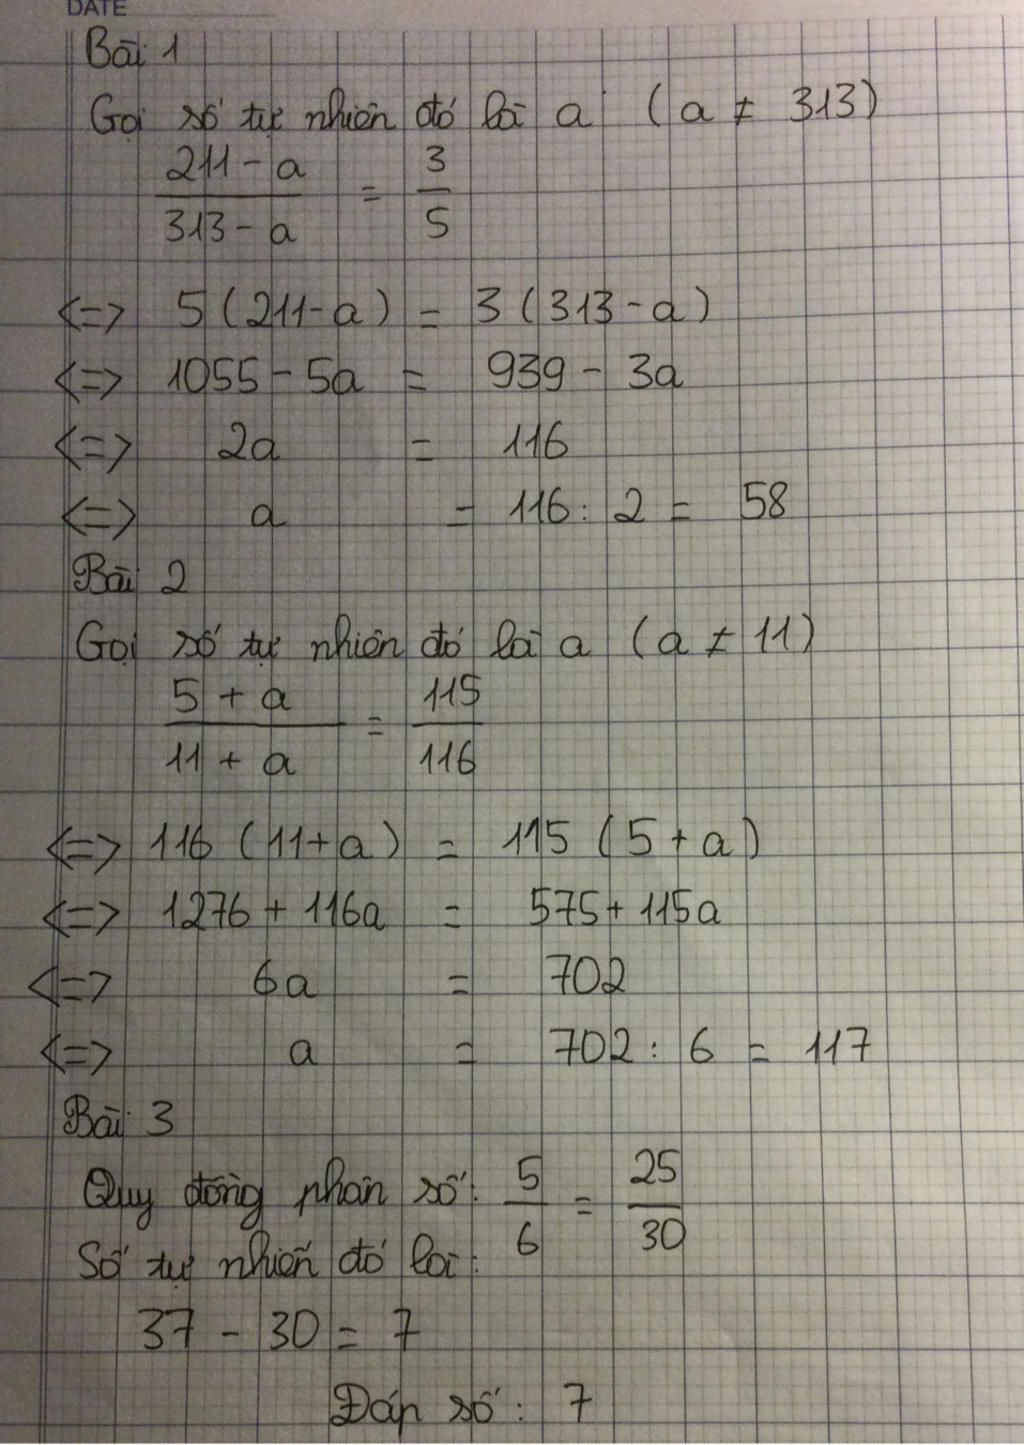 DATE
Bài 1
Gọi số tự nhiên đó là a (a ≠ 313)
211 - a / 313 - a = 3 / 5
<=> 5 (211 - a) = 3 (313 - a)
<=> 1055 - 5a = 939 - 3a
<=> 2a = 116
<=> a = 116 : 2 = 58
Bài 2
Gọi số tự nhiên đó là a (a ≠ 11)
5 + a / 11 + a = 115 / 116
<=> 116 (11 + a) = 115 (5 + a)
<=> 1276 + 116a = 575 + 115a
<=> 6a = 702
<=> a = 702 : 6 = 117
Bài 3
Quy đồng phân số : 5 / 6 = 25 / 30
Số tự nhiên đó là :
37 - 30 = 7
Đáp số : 7